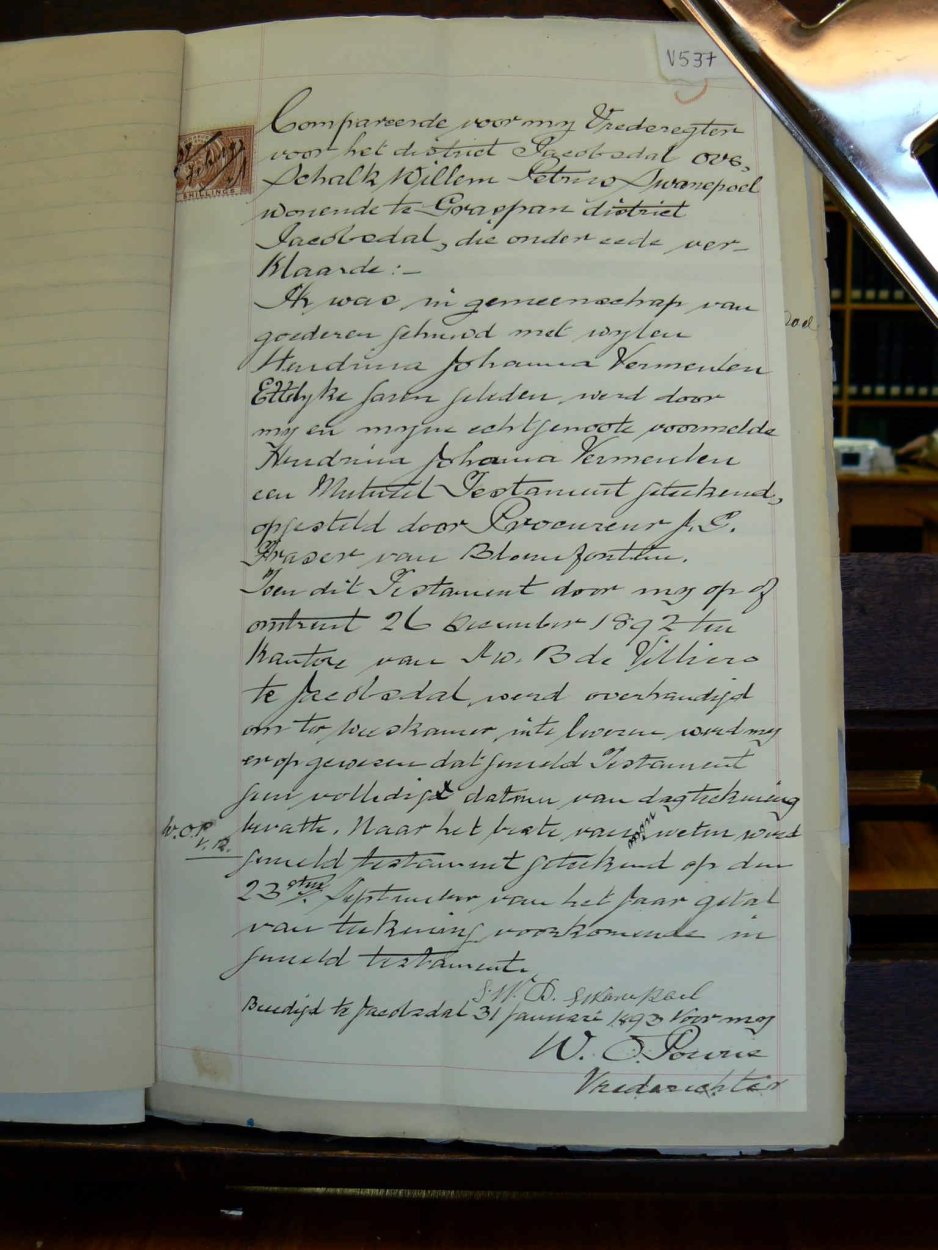 V537
Compareerde voor my Vrederegter
voor het district Jacobsdal OVS,
Schalk Willem Petrus Swanepoel
wonende te Graspan district
Jacobsdal, die onder eede ver-
klaarde :-
Ik was in gemeenschap van
goederen gehuwd met wylen
Hendrina Johanna Vermeulen
Ettelyke jaren geleden werd door
my en myne echtgenoote voormelde
Hendrina Johanna Vermeulen
een Mutueel Testament geteekend,
opgesteld door Procureur J. G.
Fraser van Bloemfontein.
Toen dit Testament door my op of
omtrent 26 December 1892 ten
kantore van B de Villiers
te Jacobsdal werd overhandigd
om ter weeskamer in te leveren werd my
er op gewezen dat gemeld Testament
geen volledige datum van dagteekening
bevatte. Naar het beste van myn weten werd
W.O.P.
V.R.
gemeld testament geteekend op den
23sten September van het jaar getal
van teekening voorkomende in
gemeld testament.
S. W. P. Swanepoel
Beedigd te Jacobsdal 31 Januari 1893 Voor my
W. O. Powrie
Vrederichter
SHILLINGS